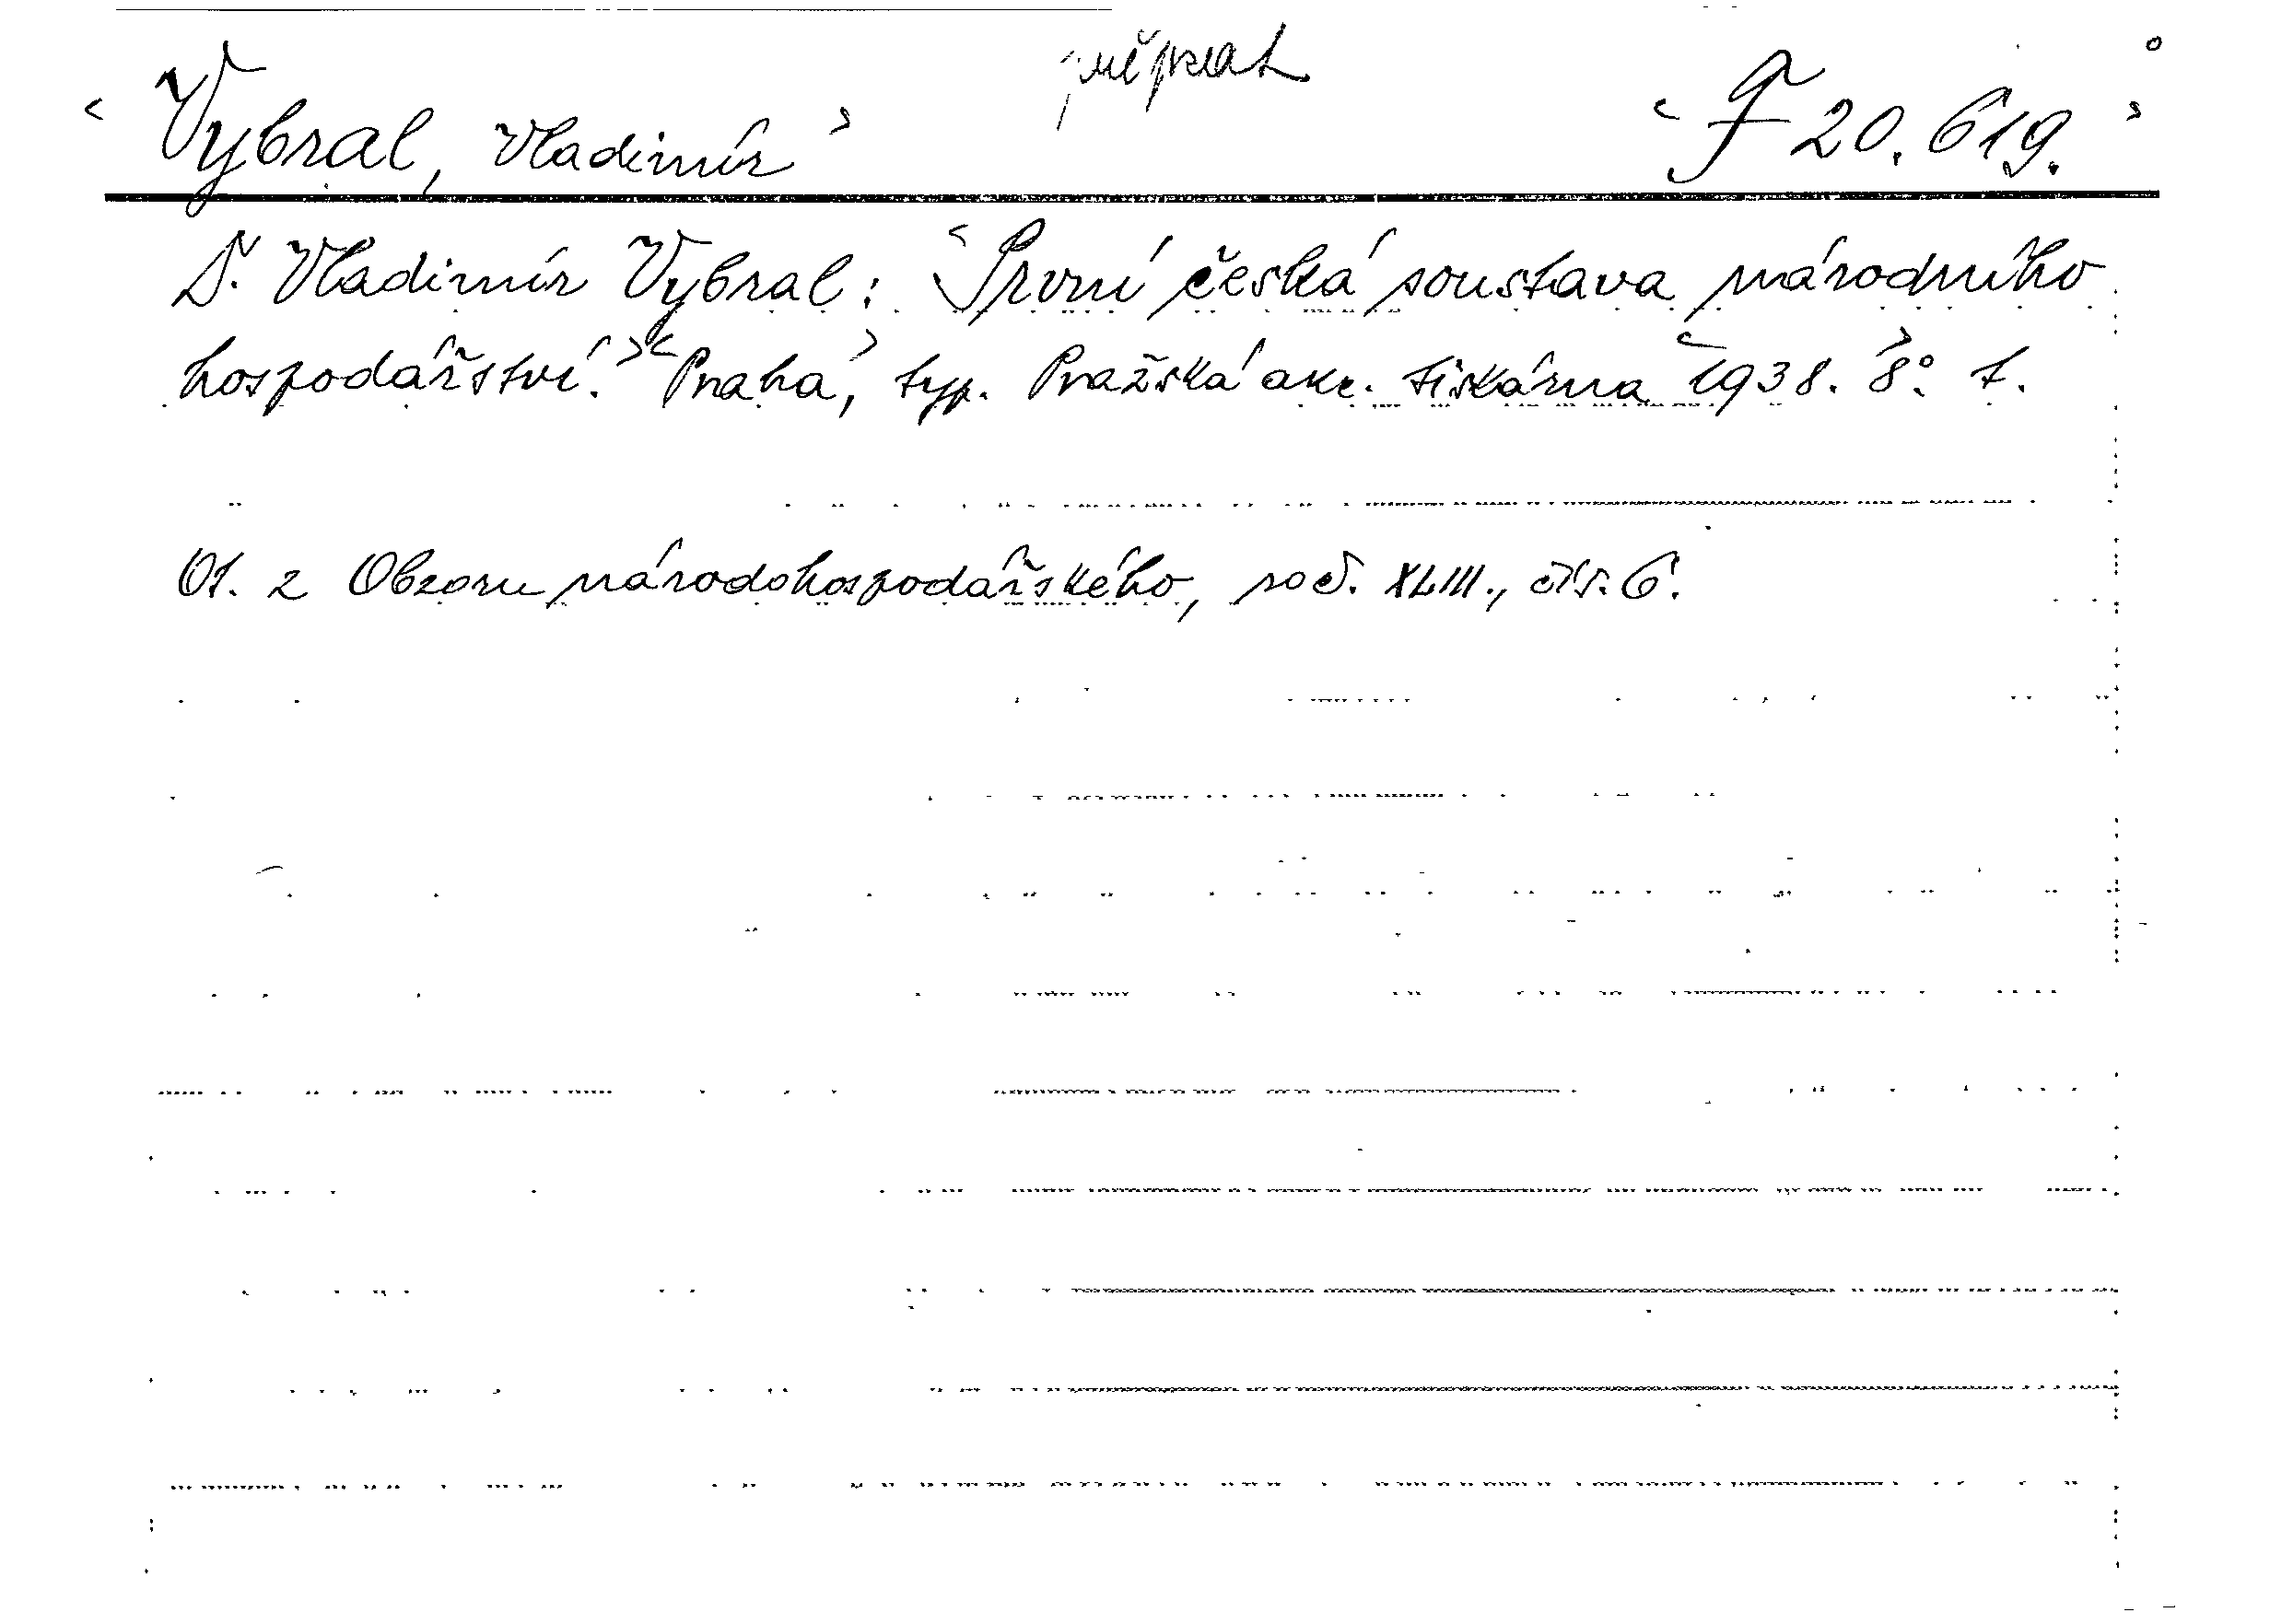 Vybral, Vladimír
F 20.619.
Dr. Vladimír Vybral: První česká soustava národního
hospodářství. Praha, typ. Pražská akc. tiskárna 1938. 8°. 1.
Ot. z Obzoru národohospodářského, roč. XLIII., čís. 6.